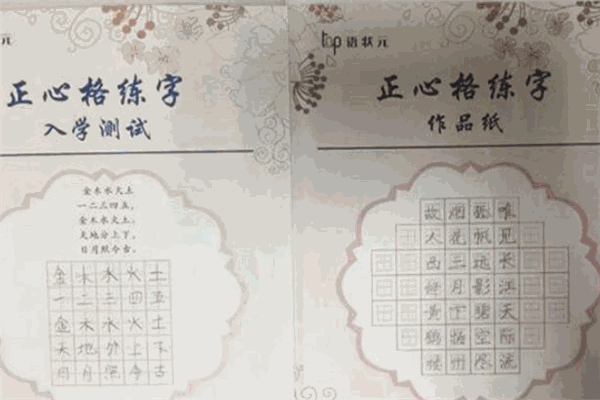 元
正心格练字
入学测试
金木水火土
一二三四五,
金木水火土。
天地分上下,
日月照今古。
金木水火土
一二三四五
金木水火土
天地分上下
日月照今古
top 语状元
正心格练字
作品纸
故烟孤唯
人花帆见
西三远长
辞月影江
黄下碧天
鹤扬空际
楼州尽流